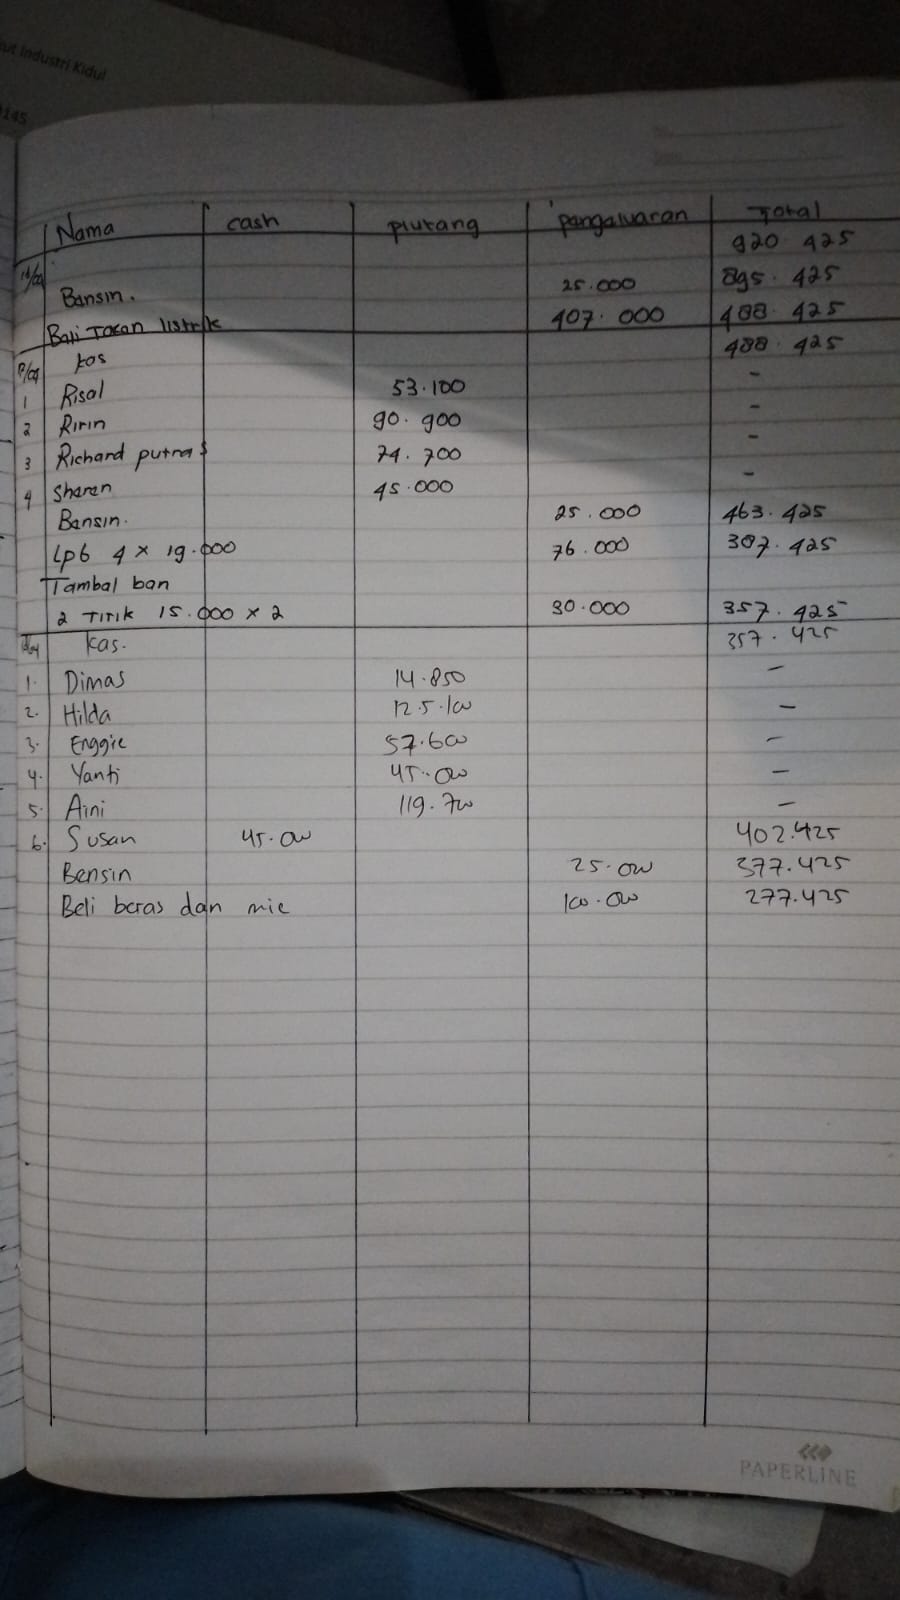 ut Industri Kidul
145
Nama cash piutang pangaluaran Total
920.425
Bansin. 25.000 895.425
Bali Token listrik 407.000 488.425
kas 488.425
1 Risal 53.100 -
2 Ririn 90.900 -
3 Richard putra 74.700 -
4 Sharen 45.000 -
Bansin. 25.000 463.425
Lpg 4 x 19.000 76.000 387.425
Tambal ban
2 Titik 15.000 x 2 30.000 357.425
kas. 357.425
1. Dimas 14.850 -
2. Hilda 125.100 -
3. Enggie 57.600 -
4. Yanti 45.000 -
5. Aini 119.700 -
6. Susan 45.000 402.425
Bensin 25.000 377.425
Beli beras dan mie 100.000 277.425
PAPERLINE